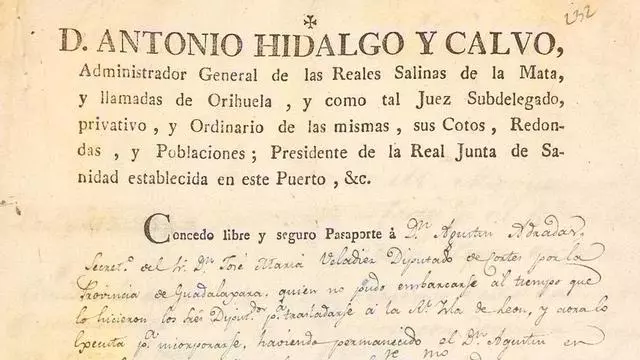 232
D. ANTONIO HIDALGO Y CALVO,
Administrador General de las Reales Salinas de la Mata,
y llamadas de Orihuela, y como tal Juez Subdelegado,
privativo, y Ordinario de las mismas, sus Cotos, Redon-
das, y Poblaciones; Presidente de la Real Junta de Sa-
nidad establecida en este Puerto, &c.
Concedo libre y seguro Pasaporte á Dn. Agustin
Secreto. del Sr. Dn. José Maria Veladier Diputado de Cortes por la
Provincia de Guadalaxara, quien no pudo embarcarse al tiempo que
lo hicieron los tres Diputdos. pa. trasladarse á la Rl. Isla de Leon, y aora lo
executa pa. incorporarse, haviendo permanecido el Dn. Agustin en